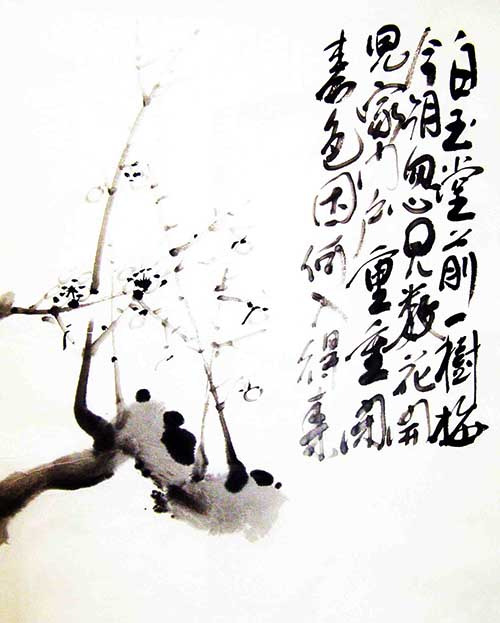 白玉堂前一樹梅
今朝忽見數花開
兒家門户重重閉
春色因何入得來